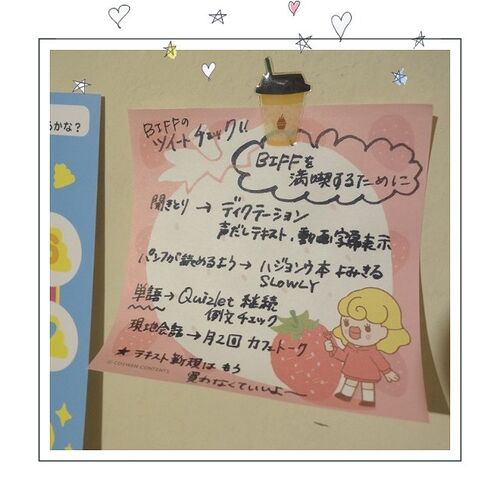 らかな?
BIFFの
ツイートチェック!!
BIFFを
満喫するために
聞きとり → ディクテーション
声だしテキスト、動画字幕表示
パンフが読めるよう → ハジョンウ本 よみきる
SLOWLY
単語 → Quizlet 継続
例文チェック
現地会話 → 月2回 カフェトーク
★ テキスト新規は もう
買わなくていいよ〜
© COEWAN CONTENTS